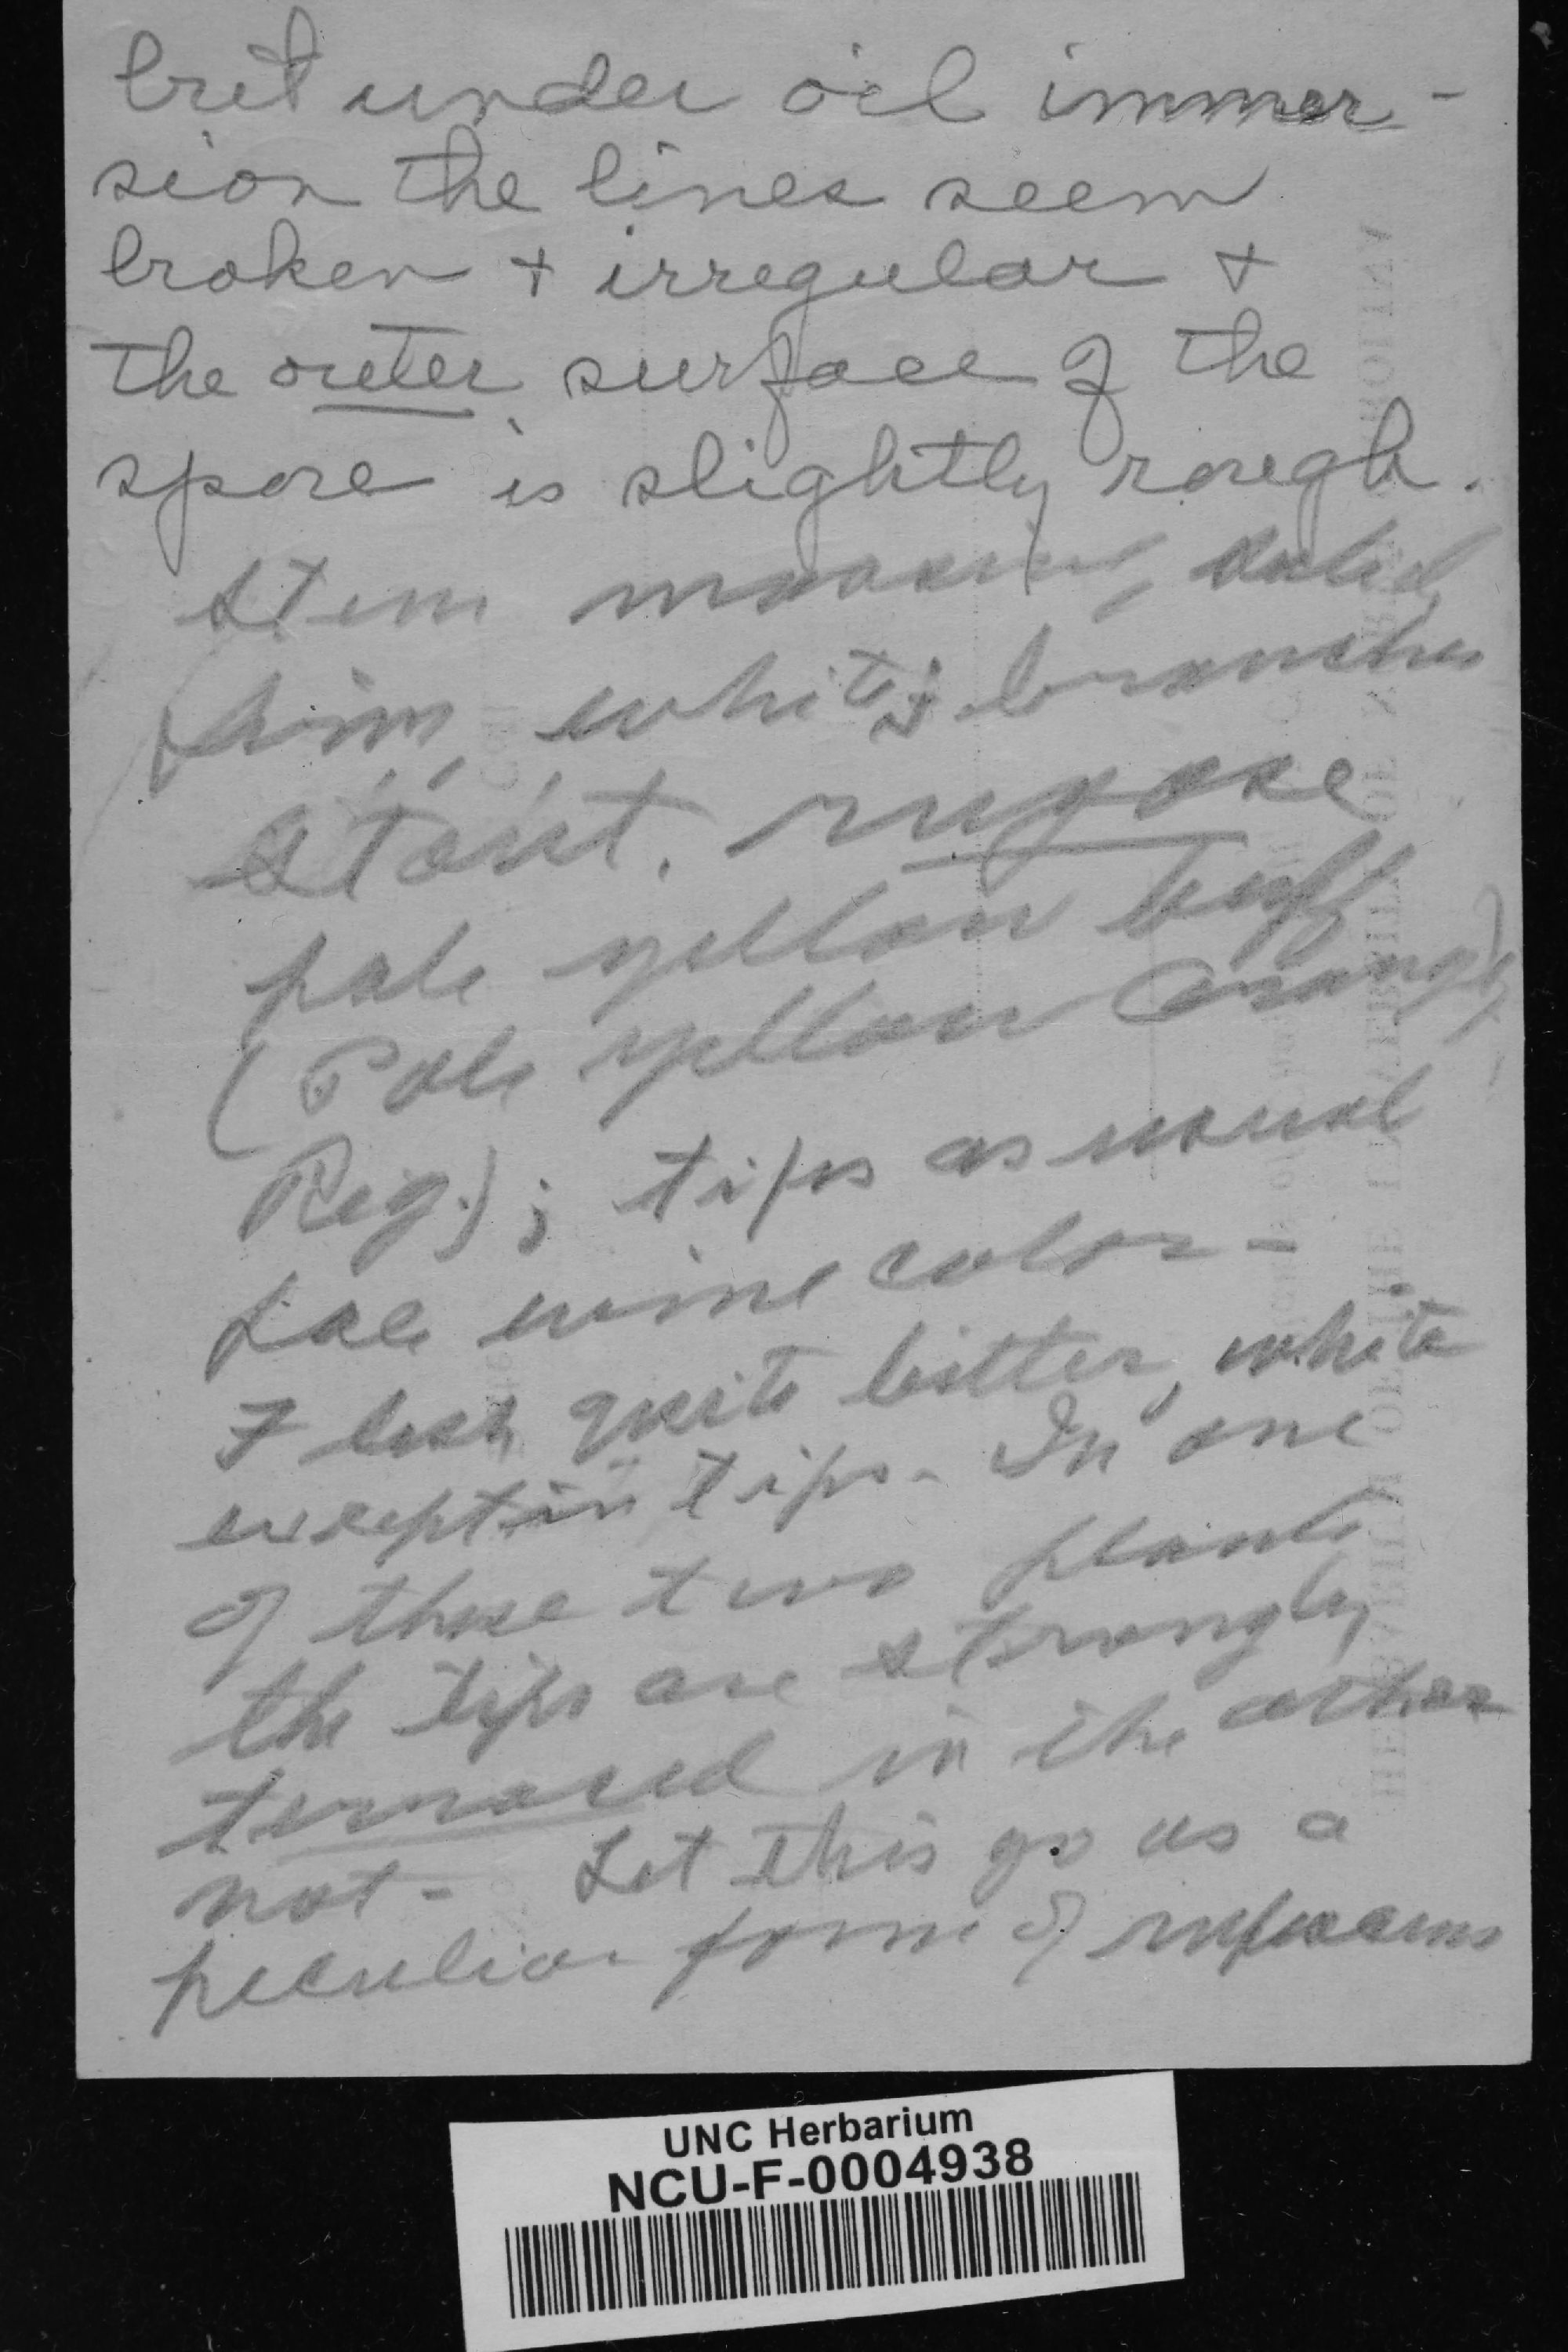 but under oil immer-
sion the lines seem
broken + irregular +
the outer surface of the
spore is slightly rough.
Stem massive, solid,
firm, white; branches
stout. rugose
pale yellow buff
(Pale yellow orange,
Rig.); tips as usual
Lac wine color -
Flesh quite bitter, white
except in tips - In one
of these two plants
the tips are strongly
in the other
not - Let this go as a
peculiar form of
UNC Herbarium
NCU-F-0004938